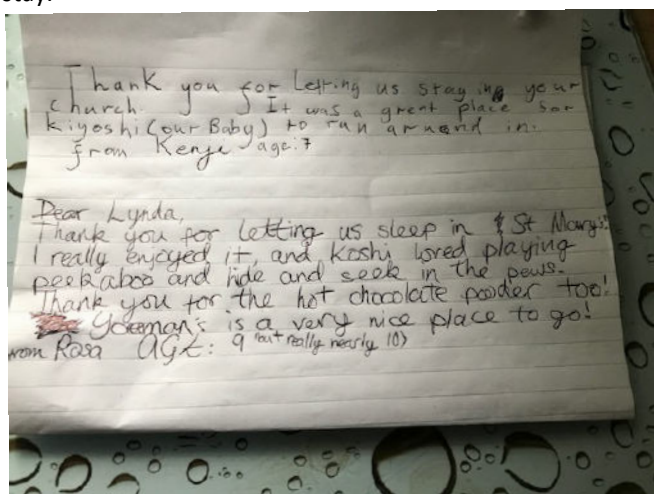 stay.
Thank you for Letting us stay in your
church. It was a great place for
Kiyoshi (our Baby) to run around in.
from Kenje age: 7
Dear Lynda,
Thank you for letting us sleep in St Mary's
I really enjoyed it, and Koshi loved playing
peekaboo and hide and seek in the pews.
Thank you for the hot chocolate powder too!
is a very nice place to go!
from Rosa AGE: 9 (but really nearly 10)